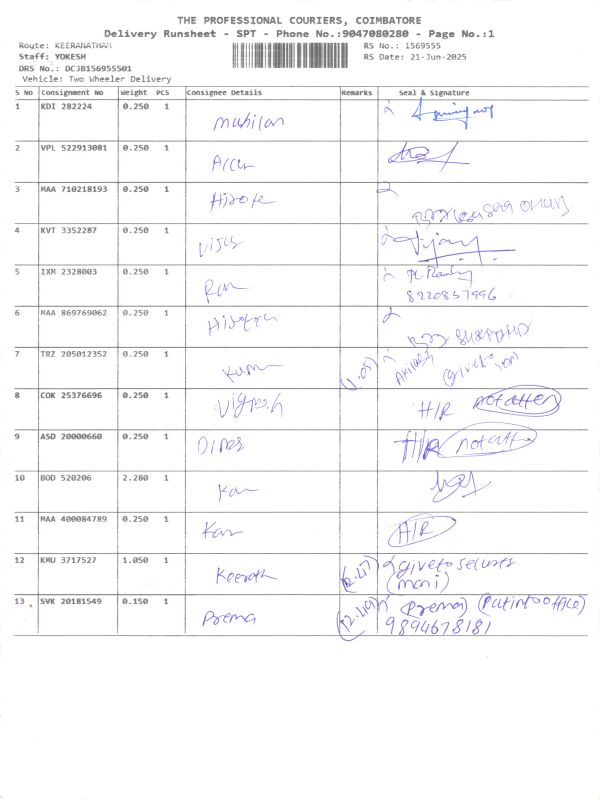 THE PROFESSIONAL COURIERS, COIMBATORE
Delivery Runsheet - SPT - Phone No.:9047080280 - Page No.:1
Route: KEERANATHAM RS No.: 1569555
Staff: YOKESH RS Date: 21-Jun-2025
DRS No.: DCJB156955501
Vehicle: Two Wheeler Delivery
S No Consignment No Weight PCS Consignee Details Remarks Seal & Signature
1 KDI 282224 0.250 1 Muhilan
2 VPL 522913081 0.250 1
3 MAA 710218193 0.250 1
4 KVT 3352287 0.250 1 Vijay
5 IXM 2328003 0.250 1
8220857996
6 MAA 869769062 0.250 1
7 TRZ 205012352 0.250 1 Kum (1.05) (give to son)
8 COK 25376696 0.250 1 Vignesh H/R not atten
9 ASD 20000660 0.250 1 Dines H/R not atte
10 BOD 520206 2.280 1 Kan
11 MAA 400084789 0.250 1 Kan A/R
12 KMU 3717527 1.050 1 Keerath (2.47) give to security
(mani)
13 SVK 20181549 0.150 1 Prema (2.49) (Prema) (Put into office)
9894678181